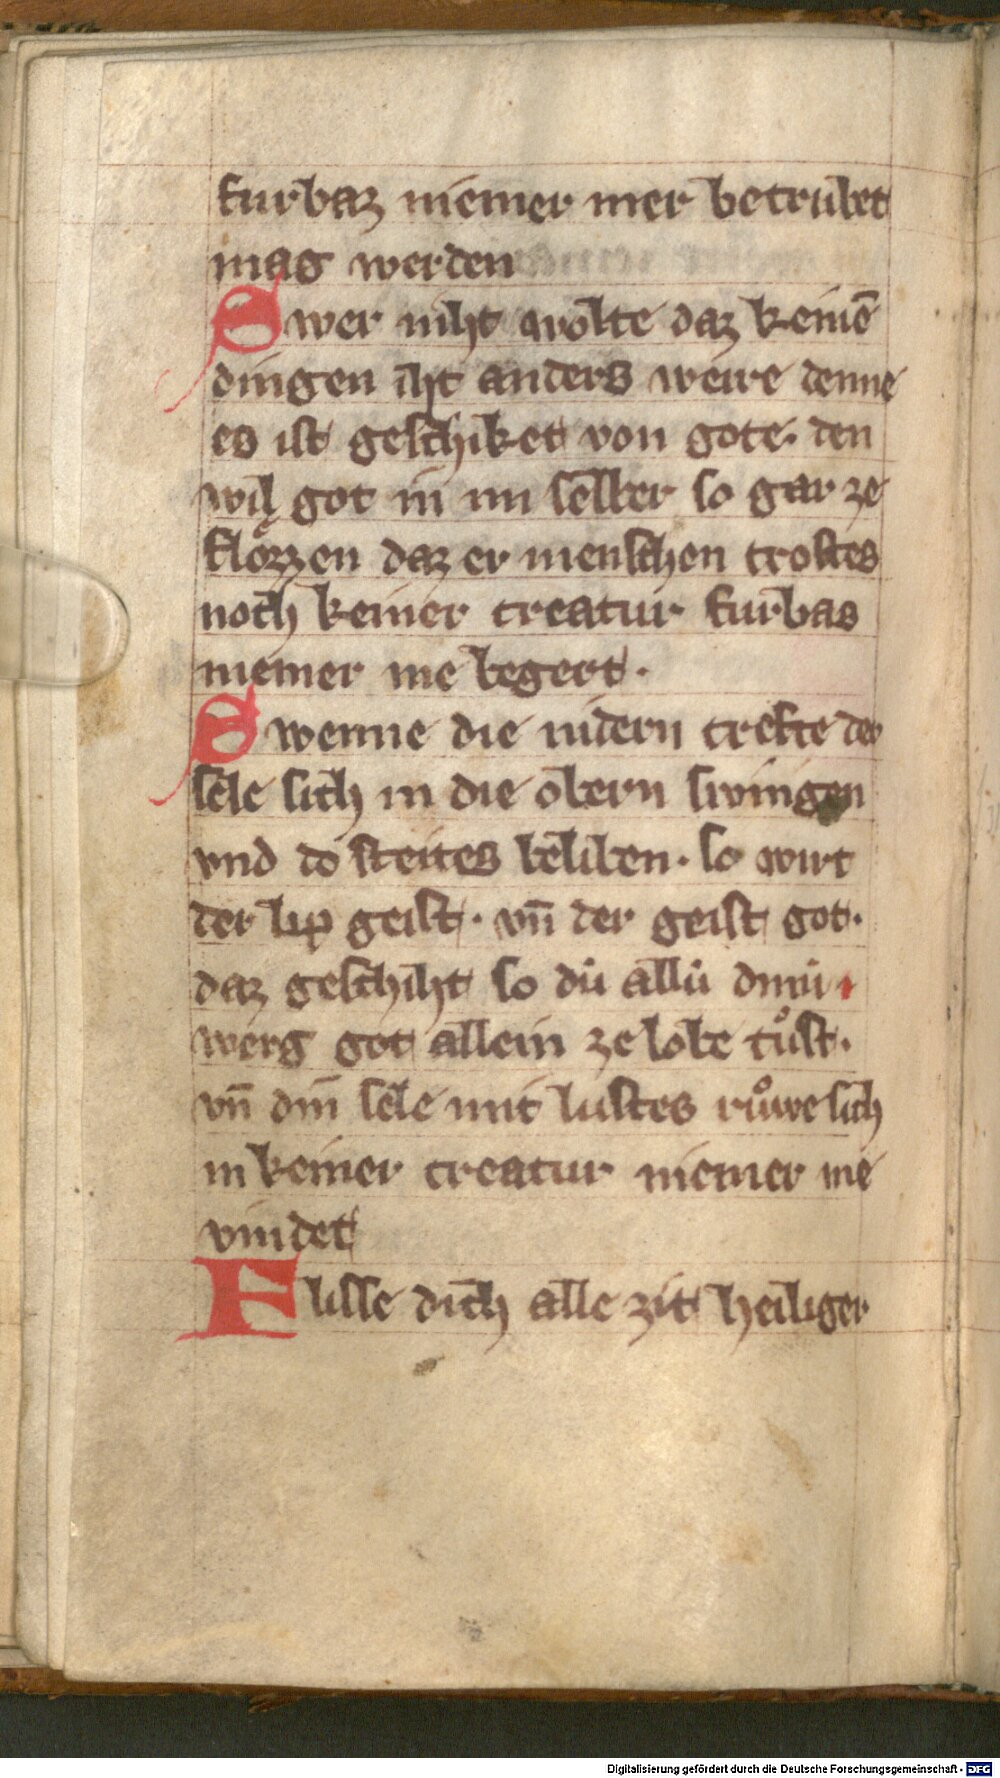 furbaz niemer mer betrubet
mag werden
Swer niht wolte daz keinē
dingen iht anders weire denne
es ist geschiket von gote· den
wil got in im selber so gar ze
flozzen daz er menschen trostes
noch keiner creatur furbas
niemer me begert·
Swenne die nidern crefte der
sele sich in die obern swingen
vnd do steites beliben· so wirt
der lip geist· vn̄ der geist got·
daz geschiht so dù allù dinù
werg got allein ze lobe tůst·
vn̄ din sele mit lustes růwe sich
in keiner creatur niemer me
vindet
Flisse dich alle zit heiliger
Digitalisierung gefördert durch die Deutsche Forschungsgemeinschaft - DFG